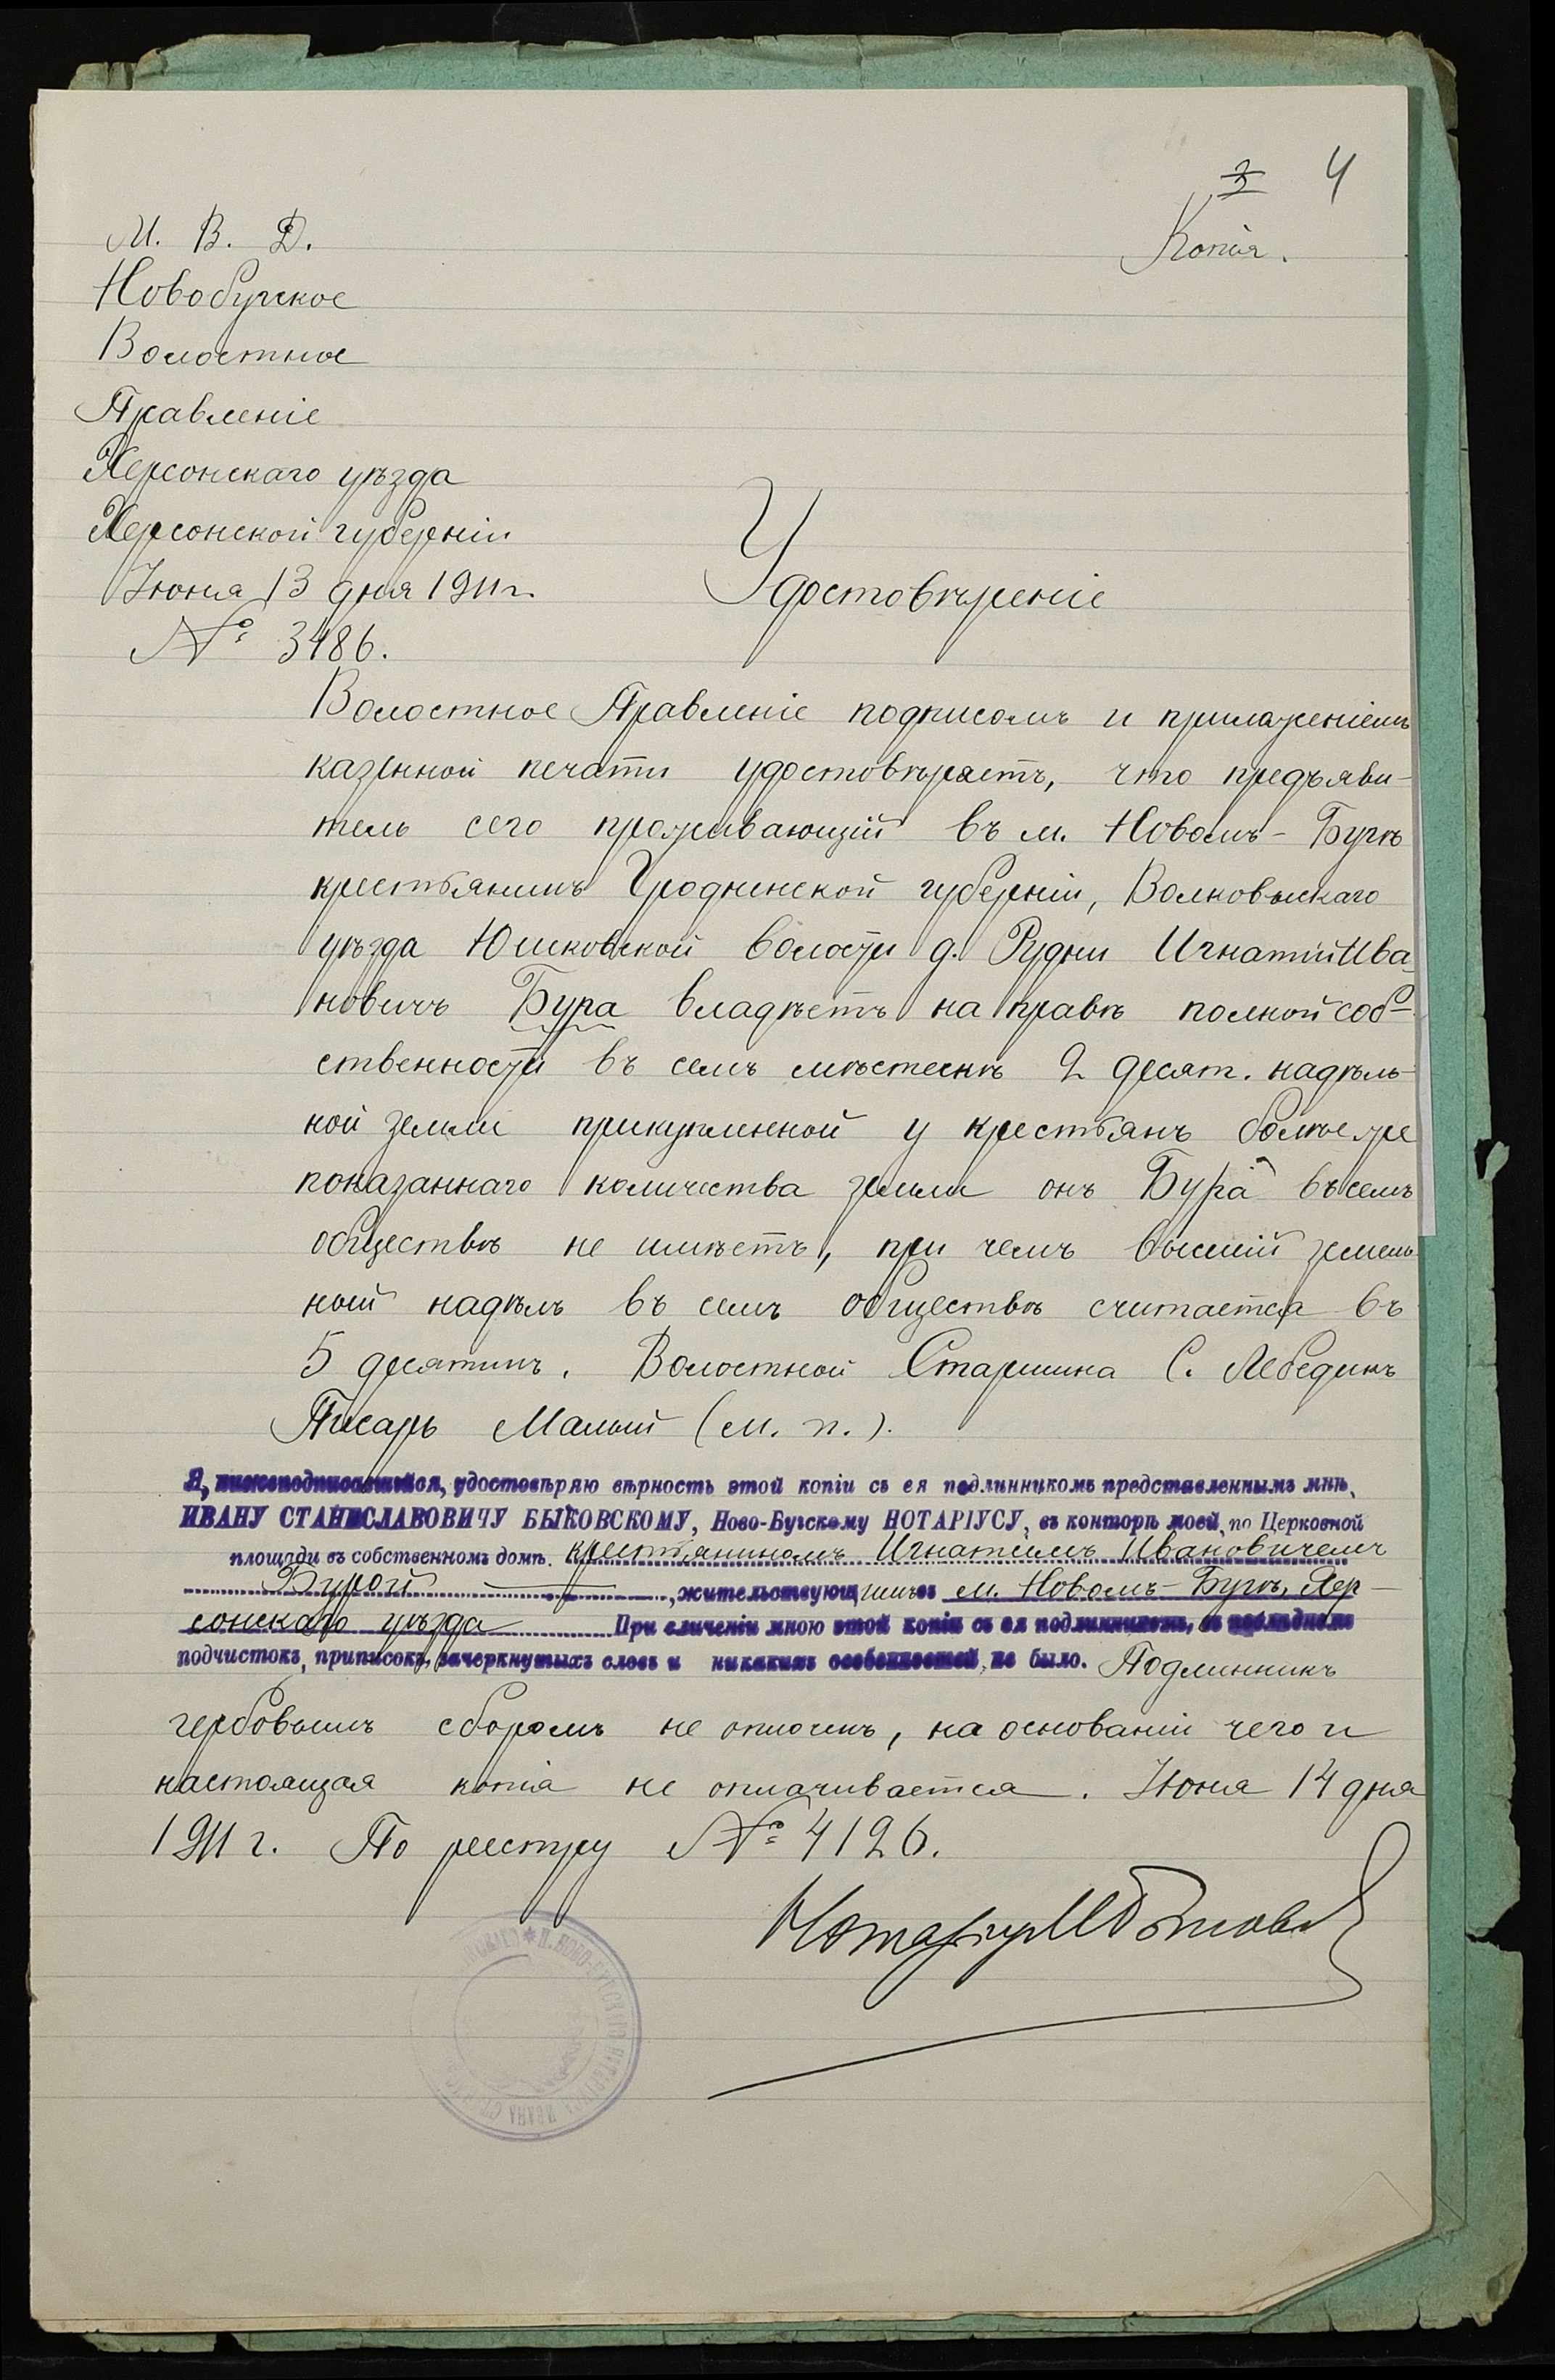 3 4
Копія.
М. В. Д.
Новобугское
Волостное
Правленіе
Херсонскаго уѣзда
Херсонской губерніи
Іюня 13 дня 1911 г.
№ 3486.
Удостовѣреніе
Волостное Правленіе подписомъ и приложеніемъ
казенной печати удостовѣряетъ, что предъяви-
тель сего проживающій въ м. Новомъ-Бугѣ
крестьянинъ Гродненской губерніи, Волковыскаго
уѣзда Юшковской волости д. Рудни Игнатій Ива-
новичъ Бура владѣетъ на правѣ полной соб-
ственности въ семъ мѣстечкѣ 2 десят. надѣль-
ной земли прикупленной у крестьянъ болѣе же
показаннаго количества земли онъ Бура въ семъ
обществѣ не имѣетъ, при чемъ высшій земель-
ный надѣлъ въ семъ обществѣ считается въ
5 десятинъ. Волостной Старшина С. Лебединъ
Писарь Малый (м. п.).
Я, нижеподписавшійся, удостовѣряю вѣрность этой копіи съ ея подлинникомъ представленнымъ мнѣ,
ИВАНУ СТАНИСЛАВОВИЧУ БЫКОВСКОМУ, Ново-Бугскому НОТАРІУСУ, въ конторѣ моей, по Церковной
площади въ собственномъ домѣ. крестьяниномъ Игнатіемъ Ивановичемъ
Бурой, жительствующимъ въ м. Новомъ-Бугѣ, Хер-
сонскаго уѣзда При сличеніи мною этой копіи съ ея подлинникомъ, въ послѣднемъ
подчистокъ, приписокъ, зачеркнутыхъ словъ и никакихъ особенностей, не было. Подлинникъ
гербовымъ сборомъ не оплоченъ, на основаніи чего и
настоящая копія не оплачивается. Іюня 14 дня
1911 г. По реестру № 4126.
Нотаріусъ
НОВО-БУГСКІЙ НОТАРІУСЪ ИВАНЪ